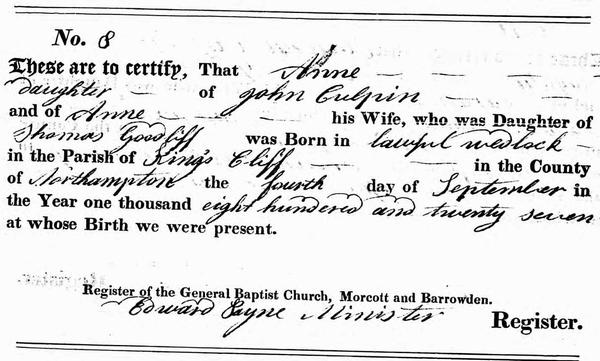 No. 8
These are to certify, That Anne
daughter of John Culpin
and of Anne his Wife, who was Daughter of
Thomas Goodliff was Born in lawful wedlock
in the Parish of King's Cliff in the County
of Northampton the fourth day of September in
the Year one thousand eight hundred and twenty seven
at whose Birth we were present.
Register of the General Baptist Church, Morcott and Barrowden.
Edward Payne Minister Register.